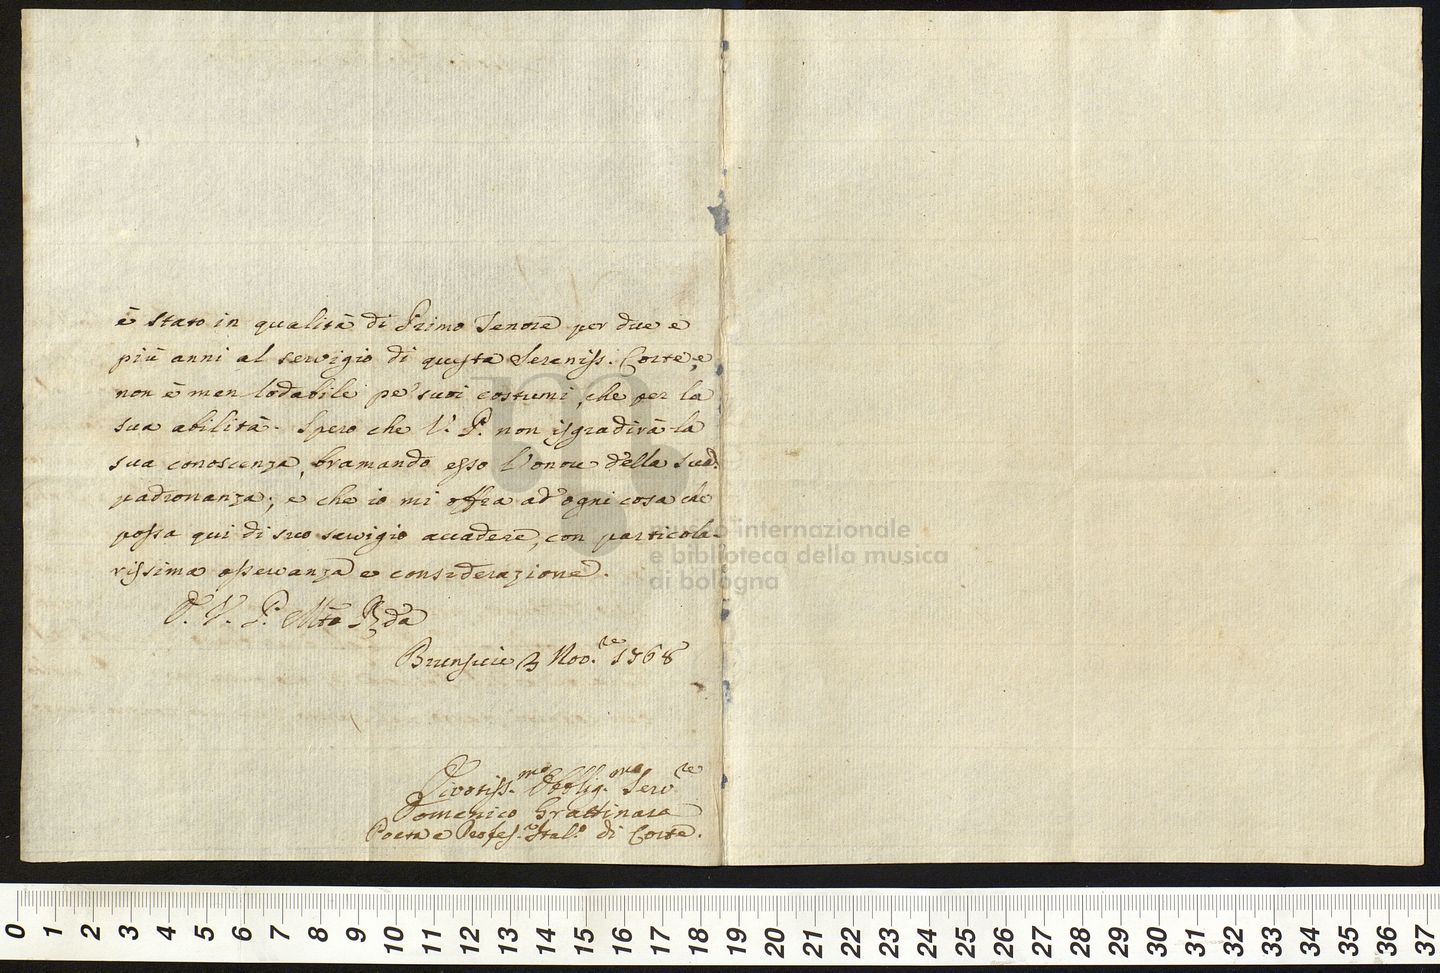 è stato in qualità di Primo Tenore per due e
più anni al servigio di questa Sereniss. Corte, e
non è men lodabile pe' suoi costumi, che per la
sua abilità. Spero che V. P. non isgradirà la
sua conoscenza, bramando esso l'onore della sua
padronanza; e che io mi offra ad ogni cosa che
possa qui di suo servigio accadere, con particola-
rissima osservanza e considerazione.
D. V. P. Mto Rda
Brunsvic 3 Nov.re 1768
Divotiss.mo Obblig.mo Serv.re
Domenico Grattinara
Poeta e Profes.e Ital.o di Corte.
museo internazionale
e biblioteca della musica
di bologna
0 1 2 3 4 5 6 7 8 9 10 11 12 13 14 15 16 17 18 19 20 21 22 23 24 25 26 27 28 29 30 31 32 33 34 35 36 37